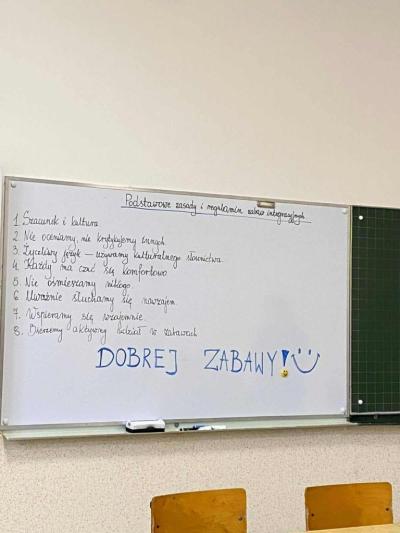 Podstawowe zasady i regulamin zabaw integracyjnych
1. Szacunek i kultura.
2. Nie oceniamy, nie krytykujemy innych.
3. Życzliwy język – używamy kulturalnego słownictwa.
4. Każdy ma czuć się komfortowo.
5. Nie ośmieszamy nikogo.
6. Uważnie słuchamy się nawzajem.
7. Wspieramy się wzajemnie.
8. Bierzemy aktywny udział w zabawach
DOBREJ ZABAWY!